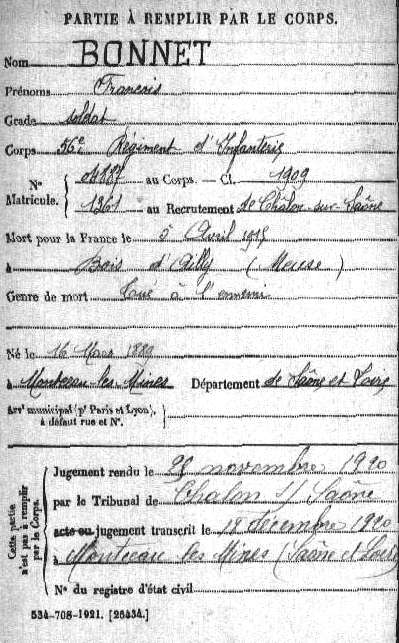 PARTIE À REMPLIR PAR LE CORPS.
Nom BONNET
Prénoms François
Grade soldat
Corps 56e Régiment d'Infanterie
Nº au Corps. — Cl. 1909
Matricule. 1361 au Recrutement de Chalon-sur-Saône
Mort pour la France le 5 Avril 1915
à Bois d'Ailly (Meuse)
Genre de mort Tué à l'ennemi
Né le 16 Mars 1889
à Montceau-les-Mines Département de Saône et Loire
Arrt municipal (pr Paris et Lyon),
à défaut rue et Nº.
Cette partie
n'est pas à remplir
par le Corps.
Jugement rendu le novembre 1920
par le Tribunal de Chalon s/ Saône
acte ou jugement transcrit le décembre 1920
à Montceau les Mines (Saône et Loire)
Nº du registre d'état civil
534-708-1921. [26434.]